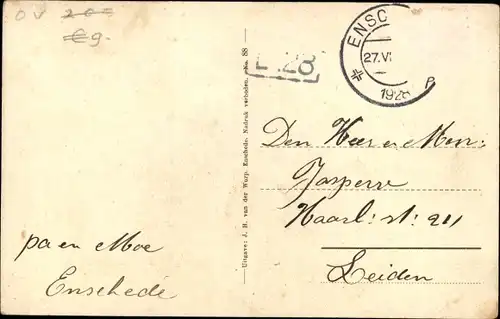 OV 200
€9.
ENSC
27.VI
1928
P
E 28
Uitgave: J. H. van der Worp, Enschede. Nadruk verboden. No. 88
Den Heer en Mevr:
Jasperse
Haarl: st: 211
Leiden
pa en Moe
Enschede